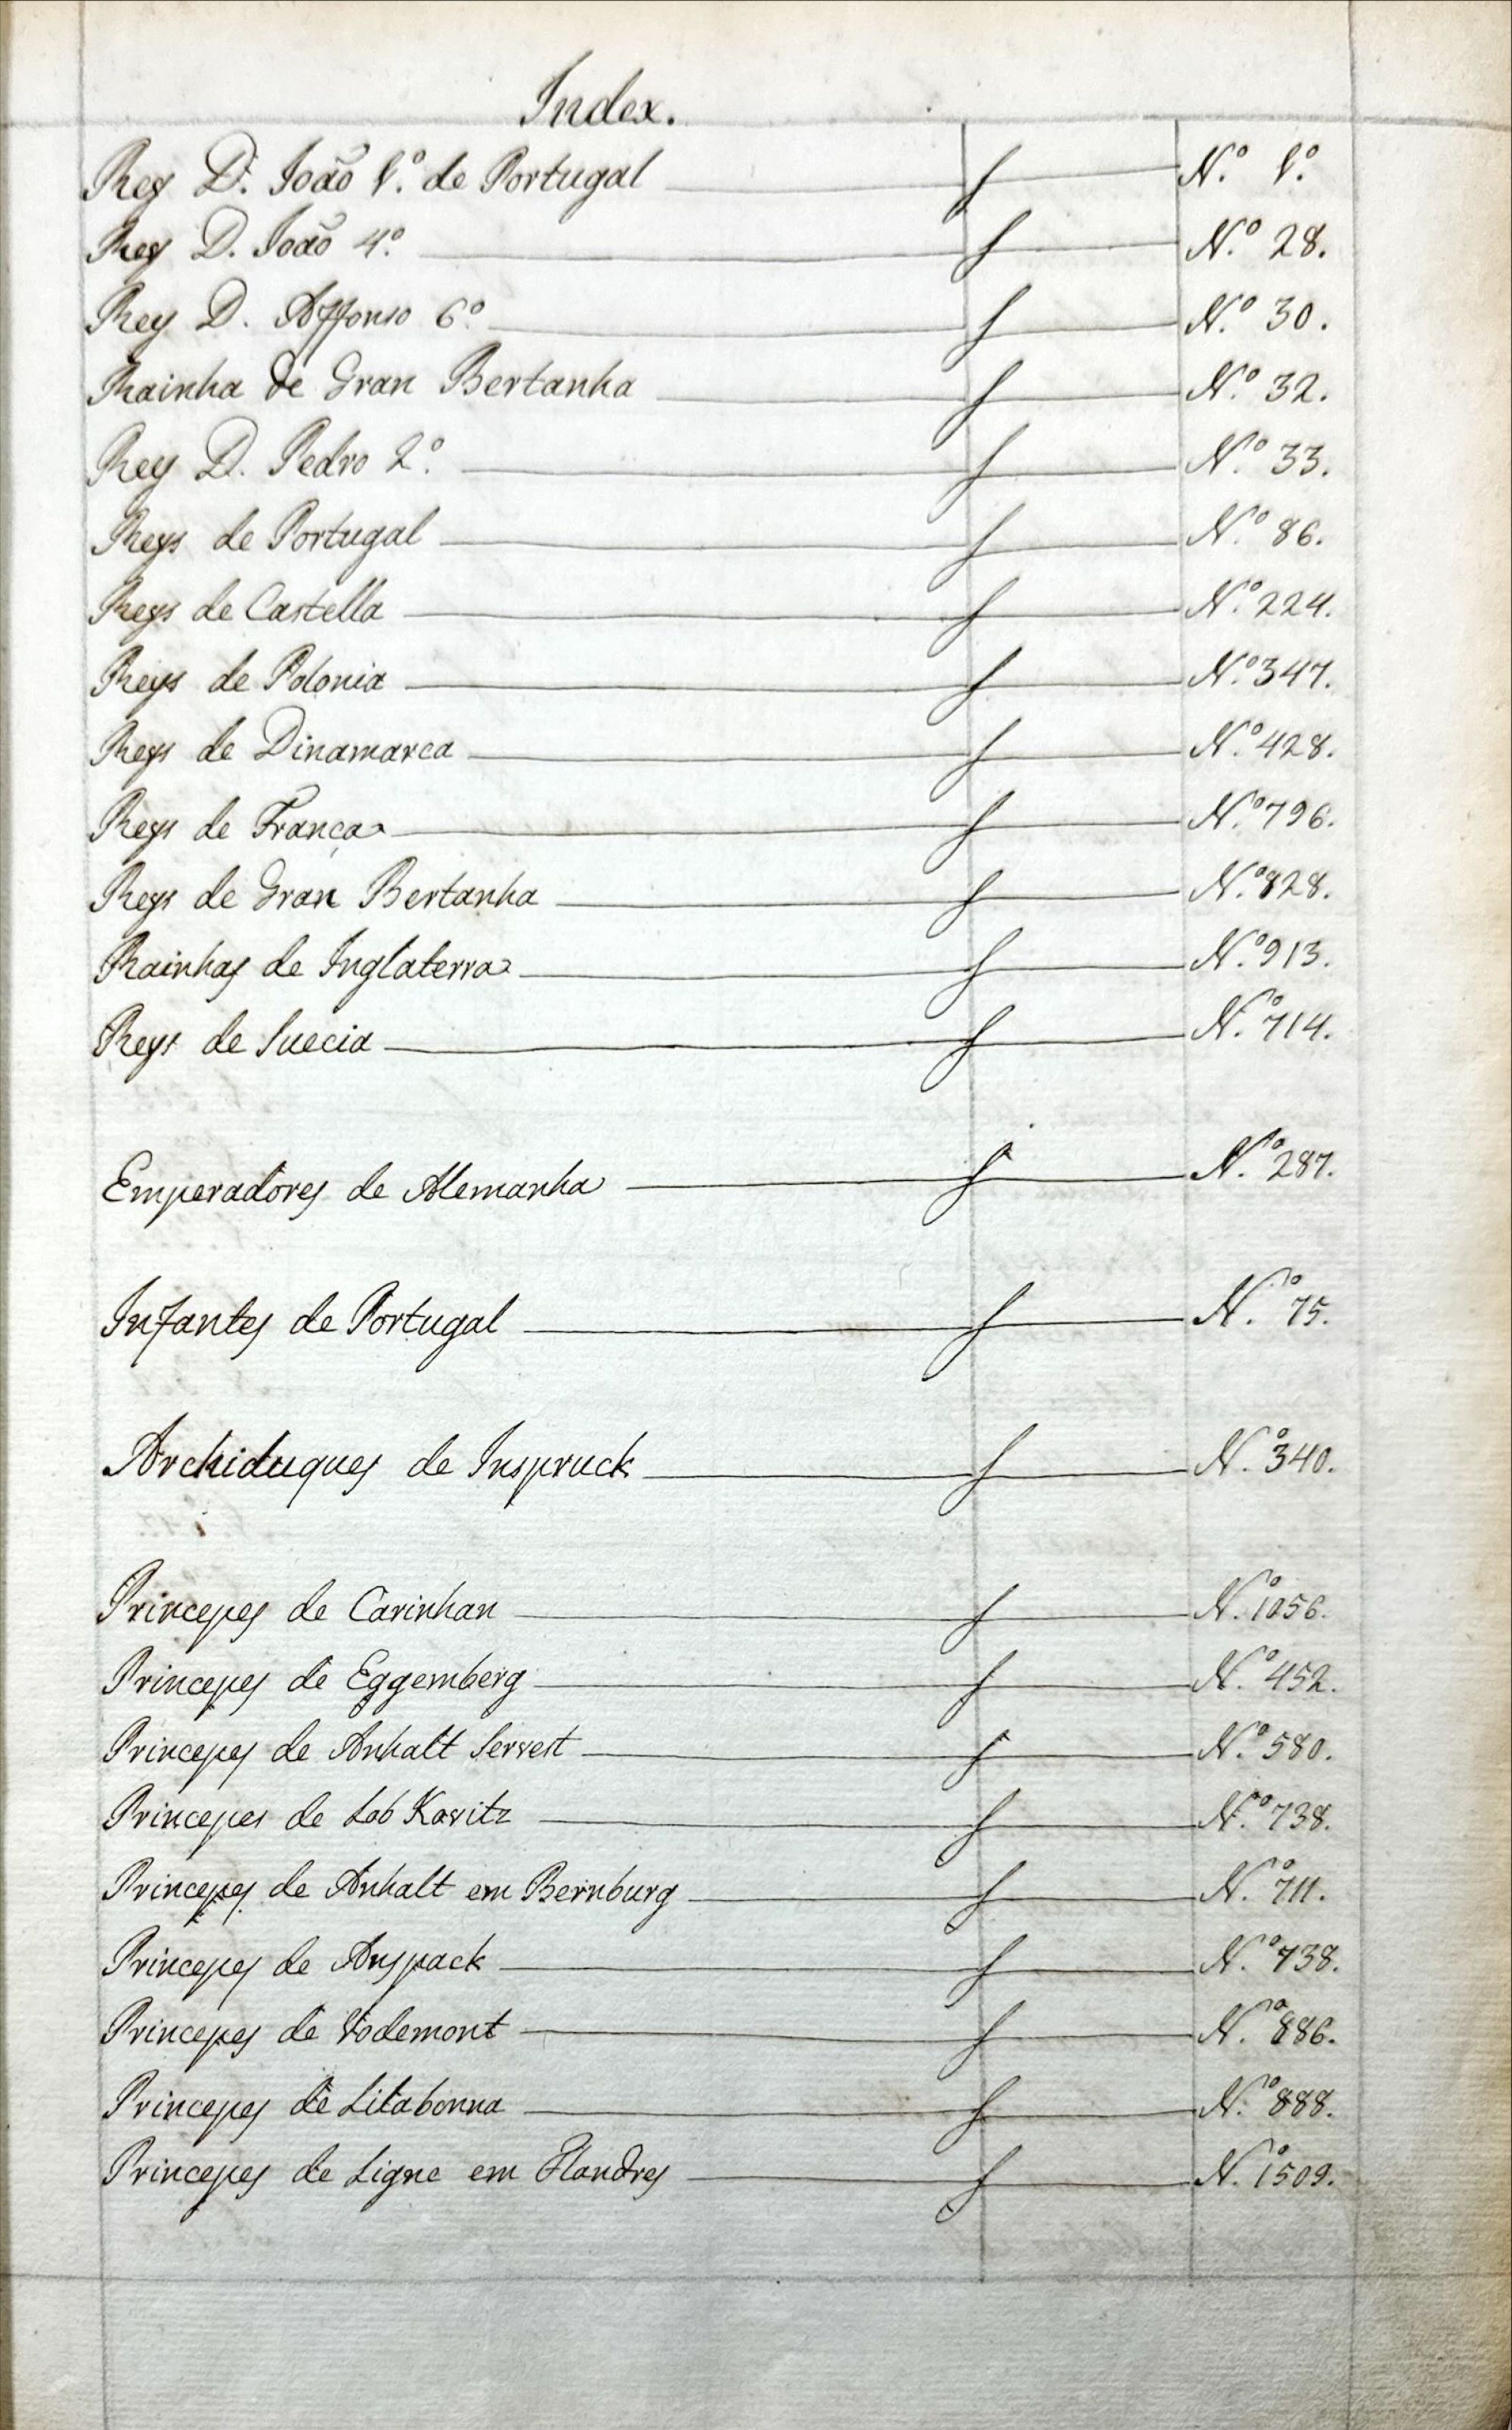 Index.
Rey D. João 1.º de Portugal f N.º 1.º
Rey D. João 4.º f N.º 28.
Rey D. Affonso 6.º f N.º 30.
Rainha de Gran Bertanha f N.º 32.
Rey D. Pedro 2.º f N.º 33.
Reys de Portugal f N.º 86.
Reys de Castella f N.º 224.
Reys de Polonia f N.º 347.
Reys de Dinamarca f N.º 428.
Reys de França f N.º 796.
Reys de Gran Bertanha f N.º 828.
Rainhas de Inglaterra f N.º 913.
Reys de Suecia f N.º 714.
Emperadores de Alemanha f N.º 287.
Infantes de Portugal f N.º 75.
Archiduques de Inspruck f N.º 340.
Princepes de Carinhan f N.º 1056.
Princepes de Eggemberg f N.º 452.
Princepes de Anhalt Servest f N.º 580.
Princepes de Lob Kovitz f N.º 738.
Princepes de Anhalt em Bernburg f N.º 711.
Princepes de Anspack f N.º 738.
Princepes de Vodemont f N.º 886.
Princepes de Lilabonna f N.º 888.
Princepes de Ligne em Flandres f N.º 1509.